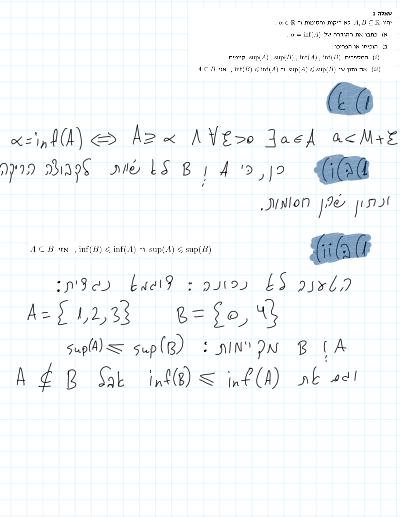 שאלה 1
יהיו A, B ⊆ ℝ לא ריקות וחסומות ו־ α ∈ ℝ.
א) כתבו את ההגדרה של α = inf(A).
ב) הוכיחו או הפריכו:
(i) המספרים sup(A), sup(B), inf(A), inf(B) קיימים.
(ii) אם נתון ש־ sup(A) ⩽ sup(B) ו־ inf(B) ⩽ inf(A), אזי A ⊂ B.
1) א)
α=inf(A) ⟺ A≥α ∧ ∀ε>0 ∃a∈A a<M+ε
1)ב)i) כן, כי A ו B לא שוות לקבוצה הריקה
ונתון שהן חסומות.
1)ב)ii) sup(A) ⩽ sup(B) ו־ inf(B) ⩽ inf(A), אזי A ⊂ B
הטענה לא נכונה: דוגמא נגדית:
A={1,2,3} B={0,4}
A ו B מקיימות: sup(A)⩽sup(B)
וגם את inf(B)⩽inf(A) אבל A ⊄ B